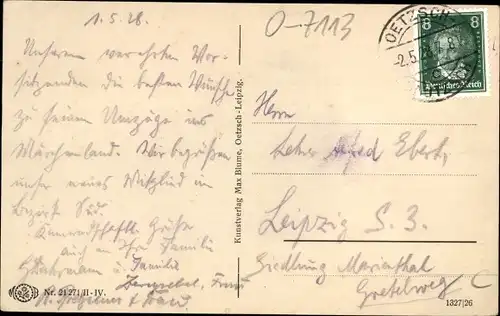 1.5.28.
O-7113
Unserem verehrten Vor-
sitzenden die besten Wünsche
zu seinem Umzuge ins
Märchenland. Wir begrüßen
unser neues Mitglied im
Bezirk Süd.
Kameradschaftl. Grüße
auch an Ihre Familie
u. Familie
Frau
u. Frau
Nr. 21271/II-IV.
Kunstverlag Max Blume, Oetzsch-Leipzig.
OETZSCH
-2.5.28
8 8
Deutsches Reich
Herrn
Lehrer Ebert,
Leipzig S. 3.
Siedlung Marienthal
Gretelweg
1327/26